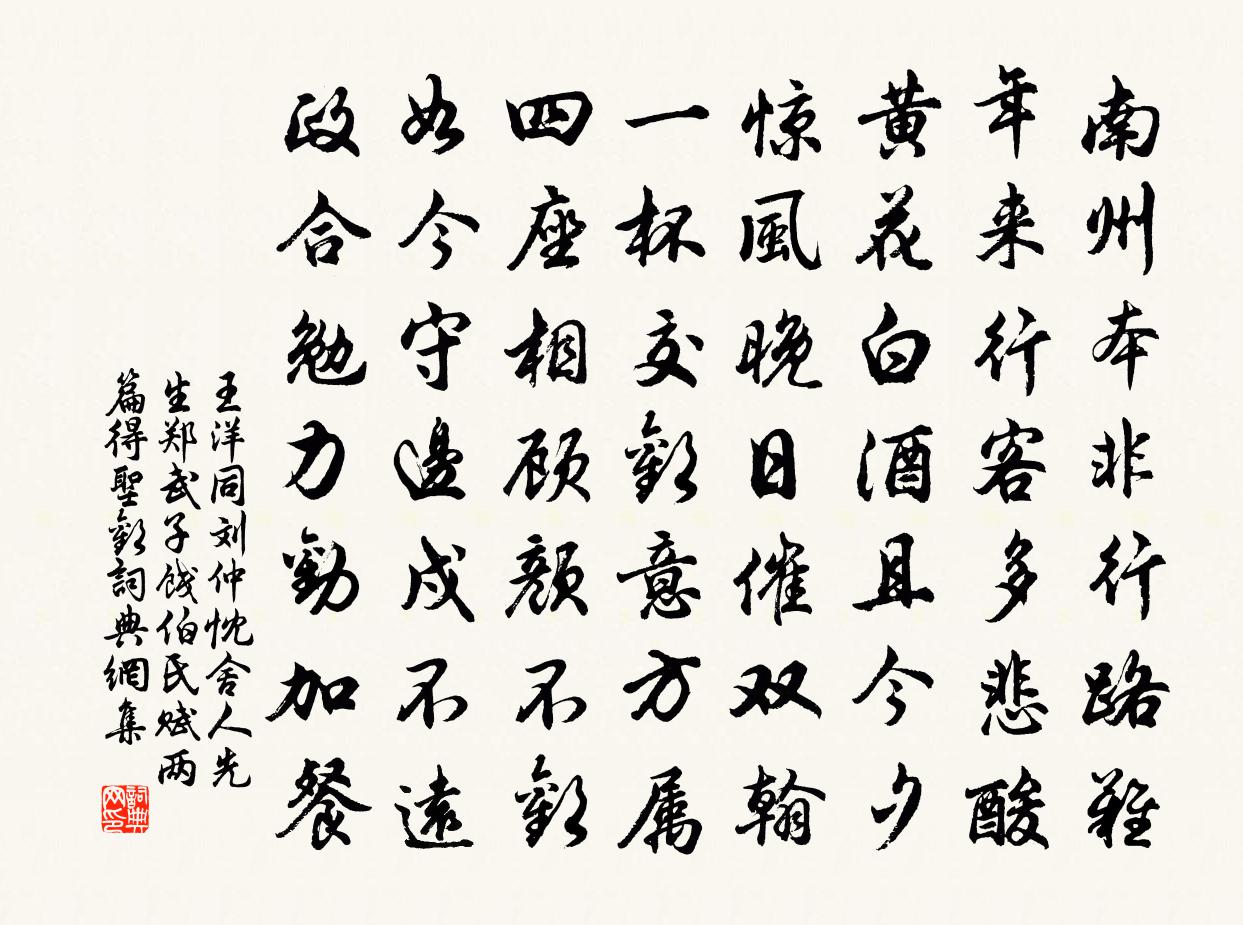 南州本非行路難
年来行客多悲酸
黄花白酒且今夕
惊風晚日催双翰
一杯交歡意方属
四座相顾顏不歡
如今守邊戍不遠
政合勉力勤加餐
王洋同刘仲忱舍人先
生郑武子饯伯民赋两
篇得聖歡詞典網集
詞典网印